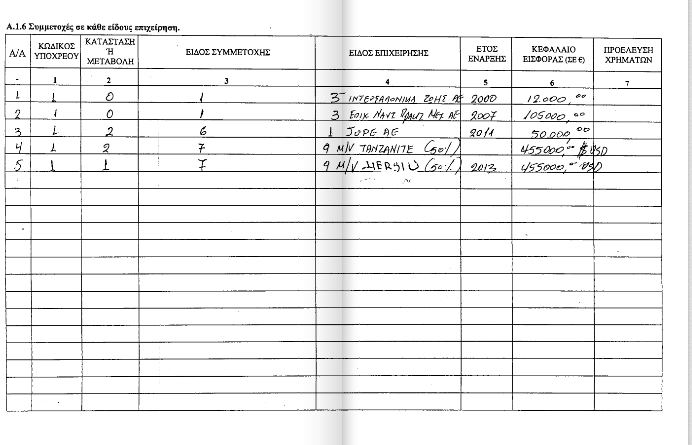 Α.1.6 Συμμετοχές σε κάθε είδους επιχείρηση.
Α/Α ΚΩΔΙΚΟΣ ΥΠΟΧΡΕΟΥ ΚΑΤΑΣΤΑΣΗ Ή ΜΕΤΑΒΟΛΗ ΕΙΔΟΣ ΣΥΜΜΕΤΟΧΗΣ ΕΙΔΟΣ ΕΠΙΧΕΙΡΗΣΗΣ ΕΤΟΣ ΕΝΑΡΞΗΣ ΚΕΦΑΛΑΙΟ ΕΙΣΦΟΡΑΣ (ΣΕ €) ΠΡΟΕΛΕΥΣΗ ΧΡΗΜΑΤΩΝ
- 1 2 3 4 5 6 7
1 1 0 1 3 ΖΩΗΣ ΑΕ 2000 12.000,00
2 1 0 1 3 ΑΕ 2007 105000,00
3 1 2 6 1 ΑΕ 2011 50.000 00
4 1 2 7 9 M/V TANZANITE (50%) 455000,- USD
5 1 1 7 9 M/V (50%) 2013 455000,- USD